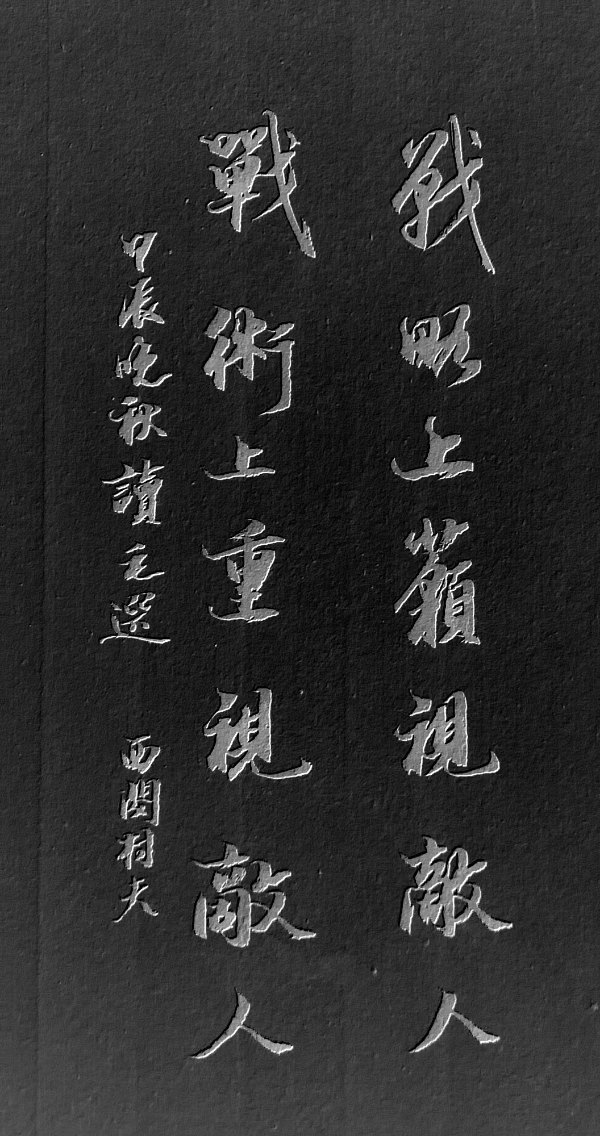 戰略上藐視敵人
戰術上重視敵人
甲辰晚秋讀毛選 西村夫